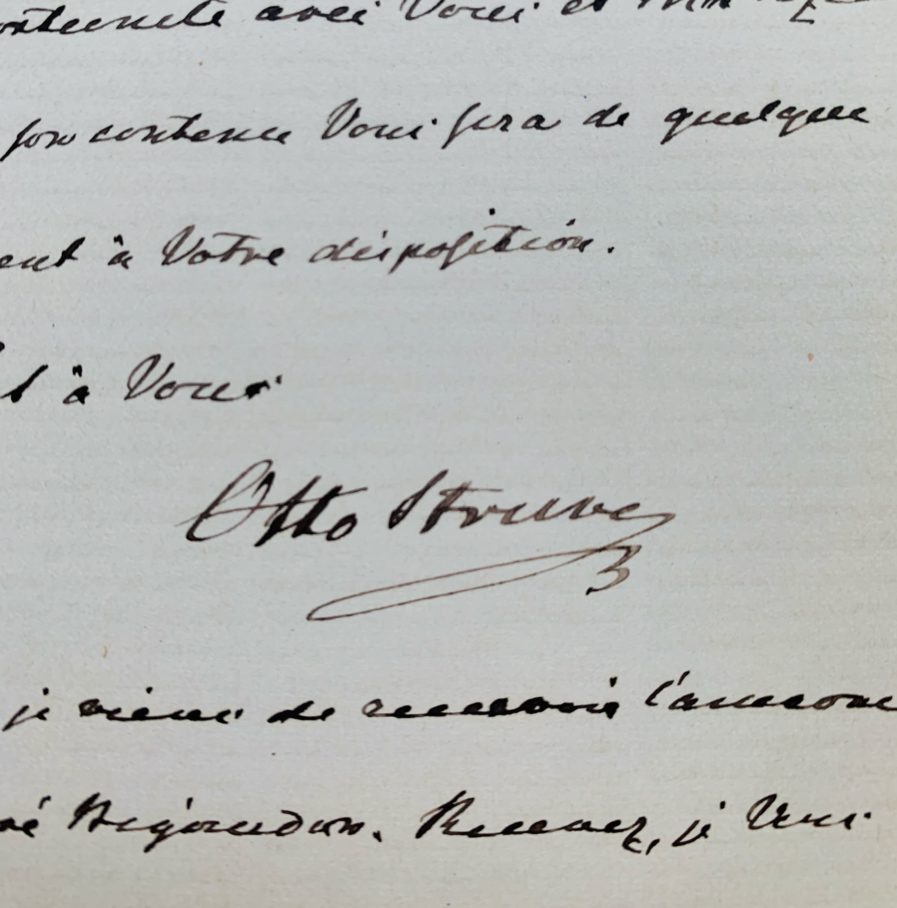 avec Vous et
son contenu Vous sera de quelque
ent à Votre disposition.
à Vous
Otto Struve
je viens de recevoir l'annonc
Bigourdan. Recevez, je Vous